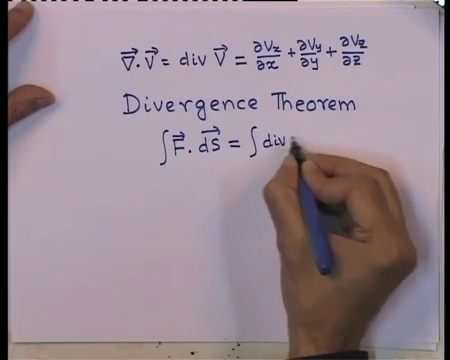 ∇⃗.V⃗ = div V⃗ = ∂Vx/∂x + ∂Vy/∂y + ∂Vz/∂z
Divergence Theorem
∫F⃗.dS⃗ = ∫div